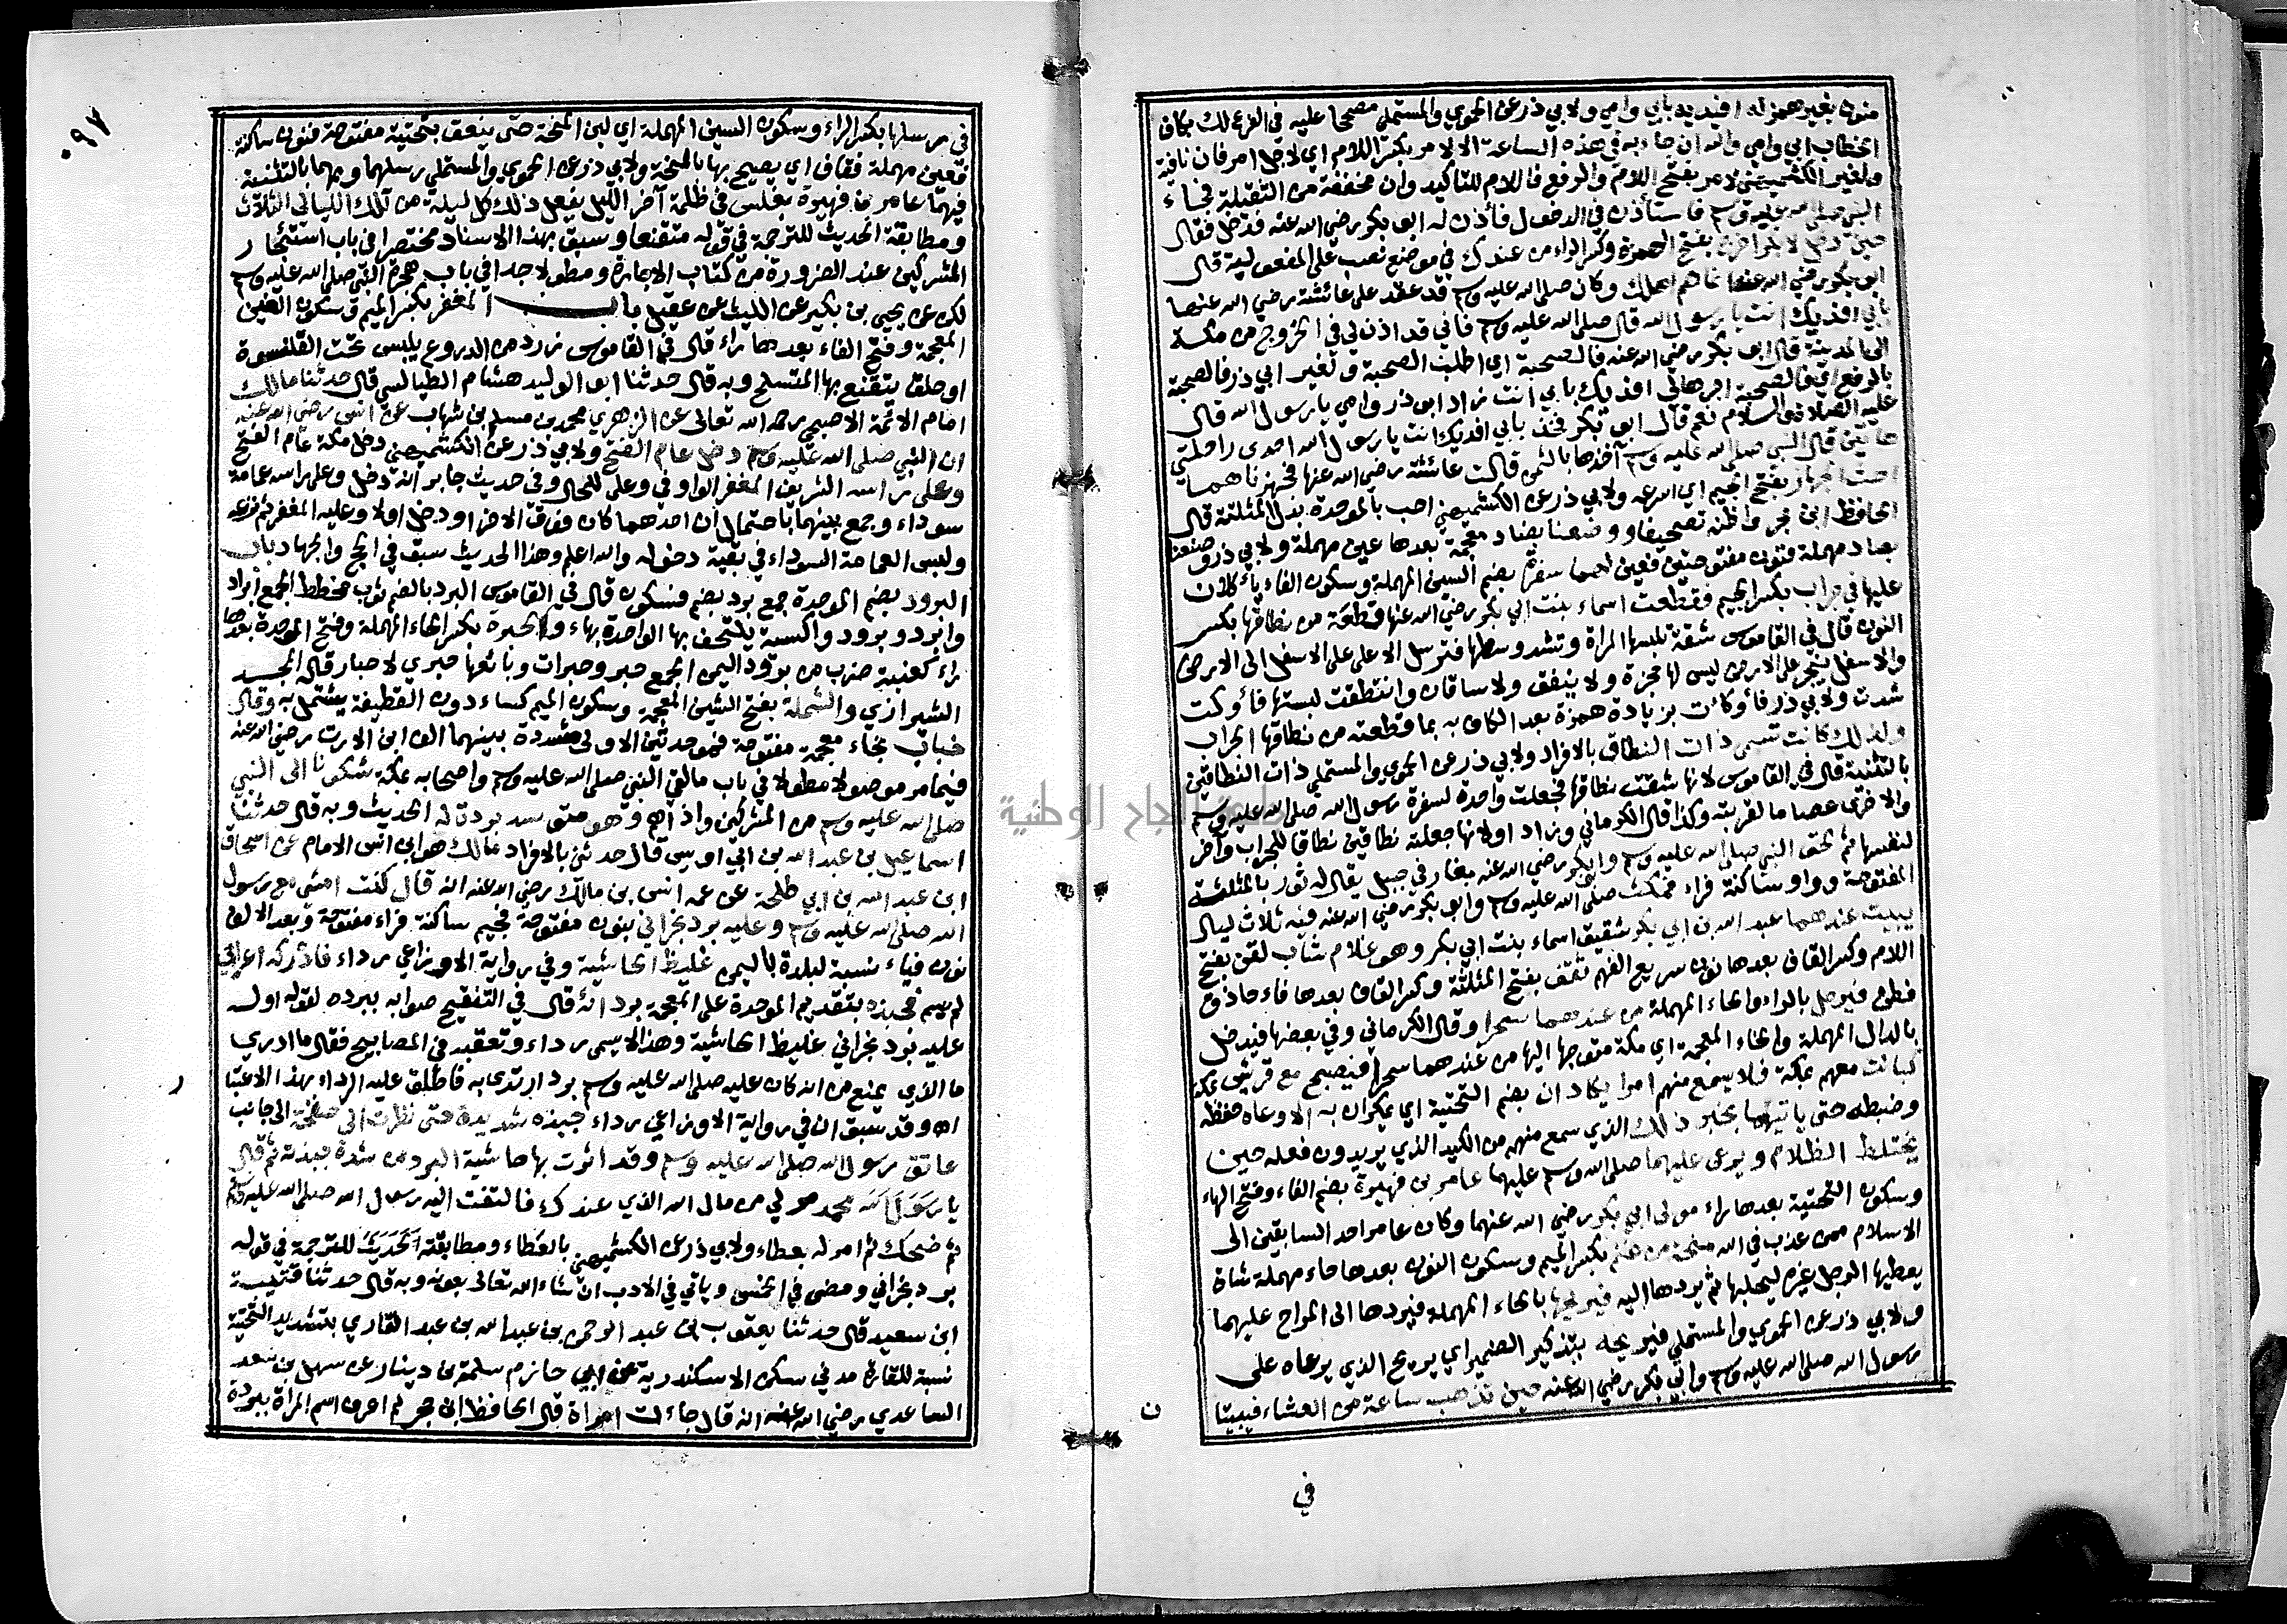 منون بغير همز له افيديه بابي وامي ولابي ذر عن الحموي والمستملي مصححا عليه في الفرع لك بكاف
الخطاب ابي وامي والله ان جاء به في هذه الساعة الا لامر بكسر اللام اي لاجل امر فان نافية
ولغير الكشميهني لامر بفتح اللام والرفع فاللام للتاكيد وان مخففة من الثقيلة فجاء
النبي صلى الله عليه وسلم فاستأذن في الدخول فأذن له ابو بكر رضي الله عنه فدخل فقال
حين دخل لابي بكر اخرج بفتح الهمزة وكسر الراء من عندك في موضع نصب على المفعولية قال
ابو بكر رضي الله عنه انما هم اهلك وكان صلى الله عليه وسلم قد عقد على عائشة رضي الله عنها
بابي افديك انت يا رسول الله قال صلى الله عليه وسلم فاني قد اذن لي في الخروج من مكة
الى المدينة قال ابو بكر رضي الله عنه فالصحبة اي اطلب الصحبة ولغير ابي ذر فالصحبة
بالرفع اي فالصحبة افديك بابي انت زاد ابو ذر وامي يا رسول الله قال
عليه الصلاة والسلام نعم قال ابو بكر فخذ بابي افديك انت يا رسول الله احدى راحلتي
هاتين قال النبي صلى الله عليه وسلم آخذها بالثمن قالت عائشة رضي الله عنها فجهزناهما
احث الجهاز بفتح الجيم اي اسرعه ولابي ذر عن الكشميهني احب بالموحدة بدل المثلثة قال
الحافظ ابن حجر واظنه تصحيفا ووضعنا بضاد معجمة بعدها عين مهملة ولابي ذر وصنعنا
بصاد مهملة فنون مفتوحتين فعين لهما سفرة بضم السين المهملة وسكون الفاء ياكلان
عليها في جراب بكسر الجيم فقطعت اسماء بنت ابي بكر رضي الله عنها قطعة من نطاقها بكسر
النون قال في القاموس شقة تلبسها المراة وتشد وسطها فترسل الاعلى على الاسفل الى الارض
والاسفل ينجر على الارض ليس لها حجزة ولا نيفق ولا ساقان وانتطقت لبستها فأوكت
شدت ولابي ذر فأوكأت بزيادة همزة بعد الكاف به بما قطعته من نطاقها الجراب
ولذلك كانت تسمى ذات النطاق بالافراد ولابي ذر عن الحموي والمستملي ذات النطاقين
بالتثنية قال في القاموس لانها شقت نطاقها فجعلت واحدة لسفرة رسول الله صلى الله عليه وسلم
والاخرى عصاما لقربته وكذا قال الكرماني وزاد او لانها جعلته نطاقين نطاقا للجراب وآخر
لنفسها ثم لحق النبي صلى الله عليه وسلم وابو بكر رضي الله عنه بغار في جبل يقال له ثور بالمثلثة
المفتوحة وواو ساكنة فراء فمكث صلى الله عليه وسلم وابو بكر رضي الله عنه فيه ثلاث ليال
يبيت عندهما عبد الله بن ابي بكر شقيق اسماء بنت ابي بكر وهو غلام شاب لقن بفتح
اللام وكسر القاف بعدها نون سريع الفهم ثقف بفتح المثلثة وكسر القاف بعدها فاء حاذق
فطن فيرحل بالراء والحاء المهملة من عندهما سحرا وقال الكرماني وفي بعضها فيدخل
بالدال المهملة والخاء المعجمة اي مكة متوجها اليها من عندهما سحرا فيصبح مع قريش بمكة
كبائت معهم بمكة فلا يسمع منهم امرا يكادان بضم التحتية اي يمكران به الا وعاه حفظه
وضبطه حتى ياتيهما بخبر ذلك الذي سمع منهم من الكيد الذي يريدون فعله حين
يختلط الظلام ويرعى عليهما صلى الله عليه وسلم عليهما عامر بن فهيرة بضم الفاء وفتح الهاء
وسكون التحتية بعدها راء مولى ابي بكر رضي الله عنهما وكان عامر احد السابقين الى
الاسلام ممن عذب في الله منحة من غنم بكسر الميم وسكون النون بعدها حاء مهملة شاة
يعطيها الرجل غيره ليحلبها ثم يردها اليه فيريحها بالحاء المهملة فيردها الى المراح عليهما
ولابي ذر عن الحموي والمستملي فيريحه بتذكير الضمير اي يريح الذي يرعاه على
رسول الله صلى الله عليه وسلم وابي بكر رضي الله عنه حين تذهب ساعة من العشاء فيبيتا
ن
في
٠٩٧
في رسلها بكسر الراء وسكون السين المهملة اي لبن المنحة حتى ينعق بتحتية مفتوحة فنون ساكنة
فعين مهملة فقاف اي يصيح بها بالمنحة ولابي ذر عن الحموي والمستملي رسلهما وبهما بالتثنية
فيهما عامر بن فهيرة بغلس في ظلمة آخر الليل يفعل ذلك كل ليلة من تلك الليالي الثلاث
ومطابقة الحديث للترجمة في قوله متقنعا وسبق بهذا الاسناد مختصرا في باب استئجار
المشركين عند الضرورة من كتاب الاجارة ومطولا جدا في باب هجرة النبي صلى الله عليه وسلم
لكن عن يحيى بن بكير عن الليث عن عقيل باب المغفر بكسر الميم وسكون الغين
المعجمة وفتح الفاء بعدها راء قال في القاموس زرد من الدروع يلبس تحت القلنسوة
او حلق يتقنع بها المتسلح وبه قال حدثنا ابو الوليد هشام الطيالسي قال حدثنا مالك
امام الائمة الاصبحي رحمه الله تعالى عن الزهري محمد بن مسلم بن شهاب عن انس رضي الله عنه
ان النبي صلى الله عليه وسلم دخل عام الفتح ولابي ذر عن الكشميهني دخل مكة عام الفتح
وعلى راسه الشريف المغفر الواو في وعلى للحال وفي حديث جابر انه دخل وعلى راسه عمامة
سوداء وجمع بينهما باحتمال ان احدهما كان فوق الاخر او دخل اولا وعليه المغفر ثم نزعه
ولبس العمامة السوداء في بقية دخوله والله اعلم وهذا الحديث سبق في الحج والجهاد باب
البرود بضم الموحدة جمع برد بضم فسكون قال في القاموس البرد بالضم ثوب مخطط الجمع ابراد
وابرد وبرود واكسية يلتحف بها الواحدة بهاء والحبرة بكسر الحاء المهملة وفتح الموحدة بعدها
راء كعنبة ضرب من برود اليمن الجمع حبر وحبرات وبائعها حبري لا حبار قاله المجد
الشيرازي والشملة بفتح الشين المعجمة وسكون الميم كساء دون القطيفة يشتمل به وقال
خباب بخاء معجمة مفتوحة فموحدتين الاولى مشددة بينهما الف ابن الارت رضي الله عنه
فيما مر موصولا مطولا في باب ما لقي النبي صلى الله عليه وسلم واصحابه بمكة شكونا الى النبي
صلى الله عليه وسلم من المشركين واذاهم وهو متوسد بردة له الحديث وبه قال حدثنا
اسماعيل بن عبد الله بن ابي اويس قال حدثني بالافراد مالك هو ابن انس الامام عن اسحاق
ابن عبد الله بن ابي طلحة عن عمه انس بن مالك رضي الله عنه انه قال كنت امشي مع رسول
الله صلى الله عليه وسلم وعليه برد نجراني بنون مفتوحة فجيم ساكنة فراء مفتوحة وبعد الالف
نون فياء نسبة لبلدة باليمن غليظ الحاشية وفي رواية الاوزاعي رداء فادركه اعرابي
لم يسم فجبذه بتقديم الموحدة على المعجمة بردائه قال في التنقيح صوابه ببرده لقوله اوله
عليه برد نجراني غليظ الحاشية وهذا لا يسمى رداء وتعقبه في المصابيح فقال ما ادري
ما الذي يمنع من انه كان عليه صلى الله عليه وسلم برد ارتدى به فاطلق عليه الرداء بهذا الاعتبا
ر
اه وقد سبق ان في رواية الاوزاعي رداء جبذه شديدة حتى نظرت الى صفحة الى جانب
عاتق رسول الله صلى الله عليه وسلم وقد اثرت بها حاشية البرد من شدة جبذته ثم قال
يا رسول الله محمد مر لي من مال الله الذي عندك فالتفت اليه رسول الله صلى الله عليه وسلم
ثم ضحك ثم امر له بعطاء ولابي ذر عن الكشميهني بالعطاء ومطابقة الحديث للترجمة في قوله
برد نجراني ومضى في الخمس وياتي في الادب ان شاء الله تعالى بعونه وبه قال حدثنا قتيبة
ابن سعيد قال حدثنا يعقوب بن عبد الرحمن بن عبد الله بن عبد القاري بتشديد التحتية
نسبة للقارة مدني سكن الاسكندرية عن ابي حازم سلمة بن دينار عن سهل بن سعد
الساعدي رضي الله عنه انه قال جاءت امراة قال الحافظ ابن حجر لم اعرف اسم المراة ببردة